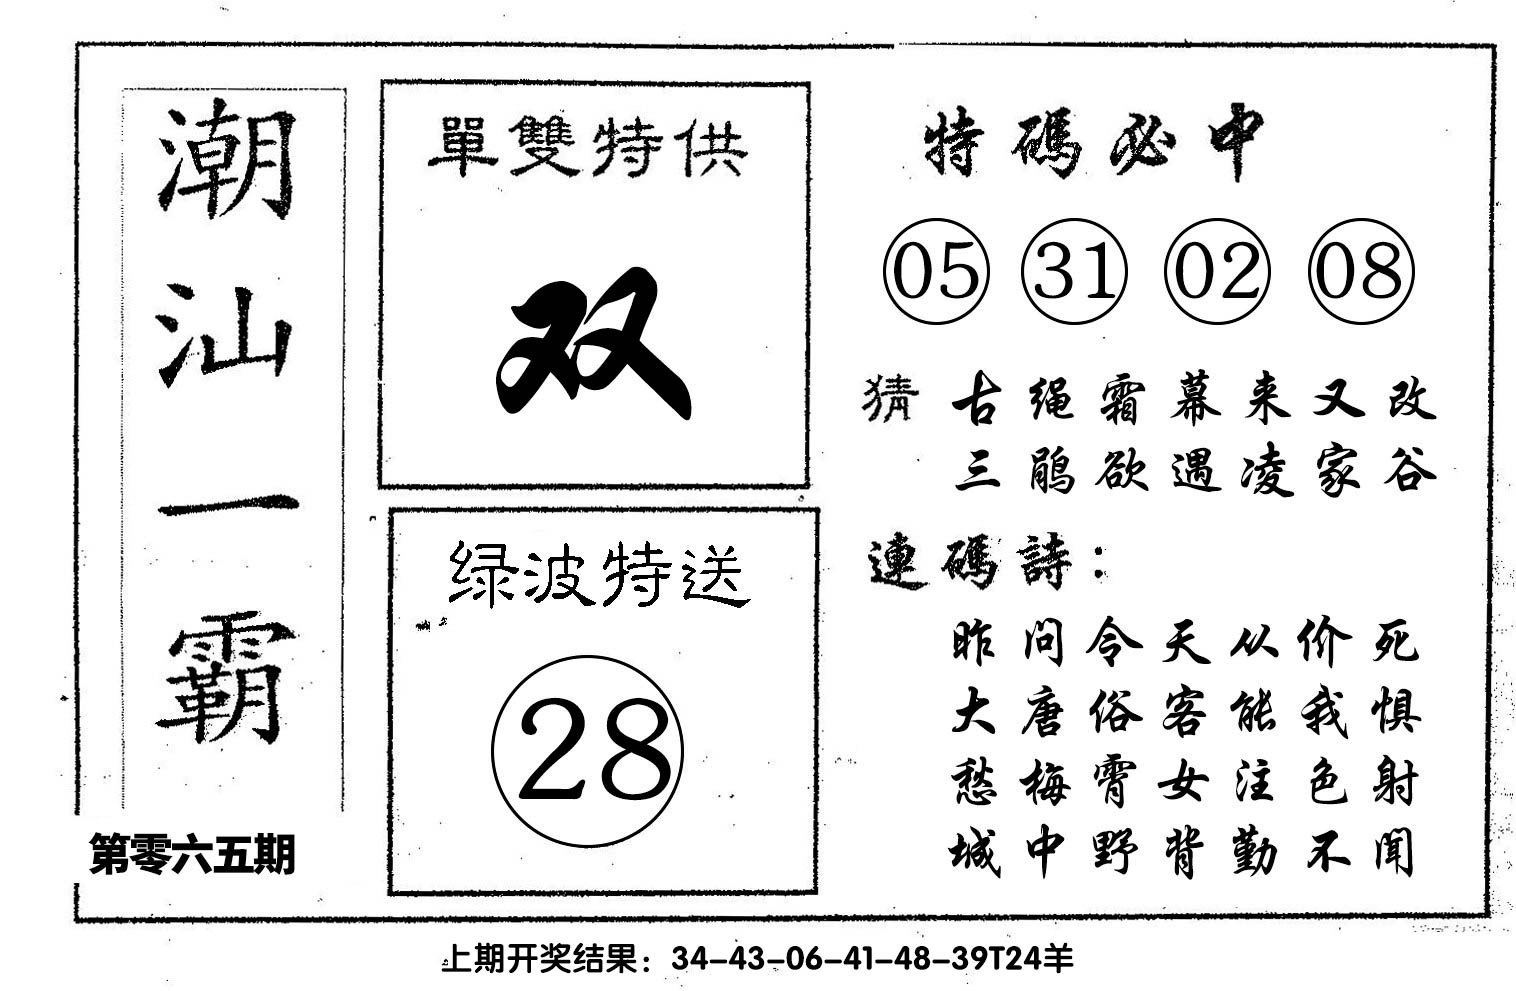 潮汕一霸
第零六五期
單雙特供
双
绿波特送
28
特碼必中
05 31 02 08
猜 古绳霜幕来又改
三鹃欲遇凌家谷
連碼詩：
昨问令天从价死
大唐俗客能我惧
愁梅霄女注色射
城中野背勤不闻
上期开奖结果：34-43-06-41-48-39T24羊